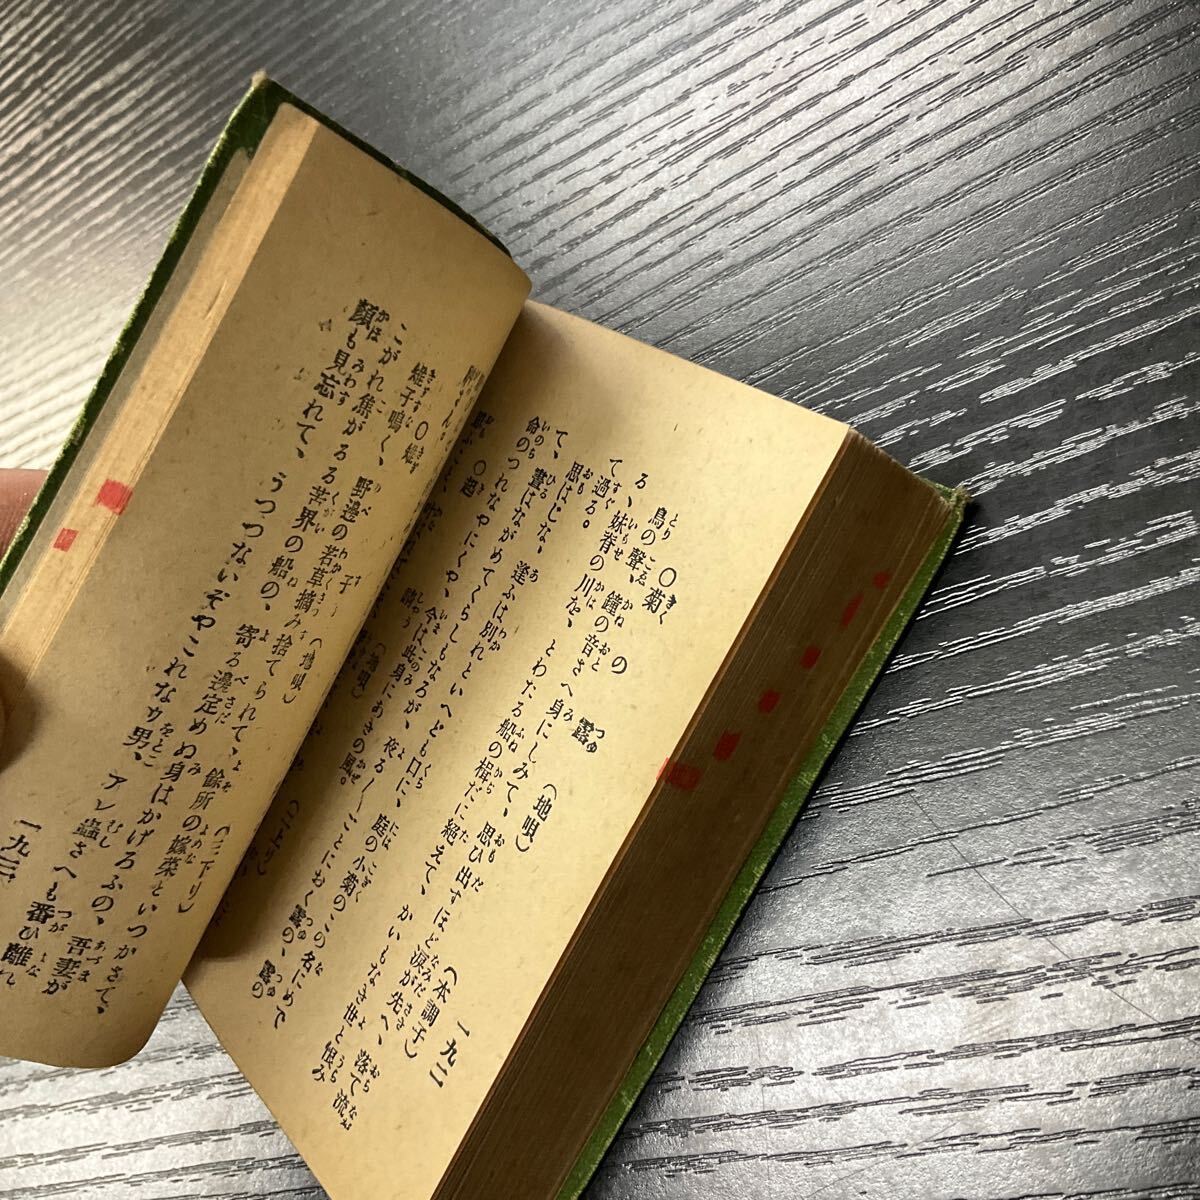 一九二
〇菊の露 (地唄) (本調子)
鳥の聲、鐘の音さへ身にしみて、思ひ出すほど涙が先へ、落て流
る、妹脊の川を、とわたる船の楫だに絶えて、かいもなき世と恨み
て過る。
思はじな、逢ふは別れといへども口に、庭の小菊のこの名にめで
て、晝はながめてくらしもなろが、夜る〱ごとにおく露の、露の
命のつれなやにくや、今は此身にあきの風。
(地唄) (二上り)
(地唄) (三下り)
雉子鳴く、野邊の若草摘み捨てられて、餘所の嫁菜といつかさて、
こがれ焦がるる苦界の船の、寄る邊定めぬ身はかげろふの、吾妻が
顔も見忘れて、うつつないぞやこれなう男、アレ蟲さへも番ひ離れ
一九三